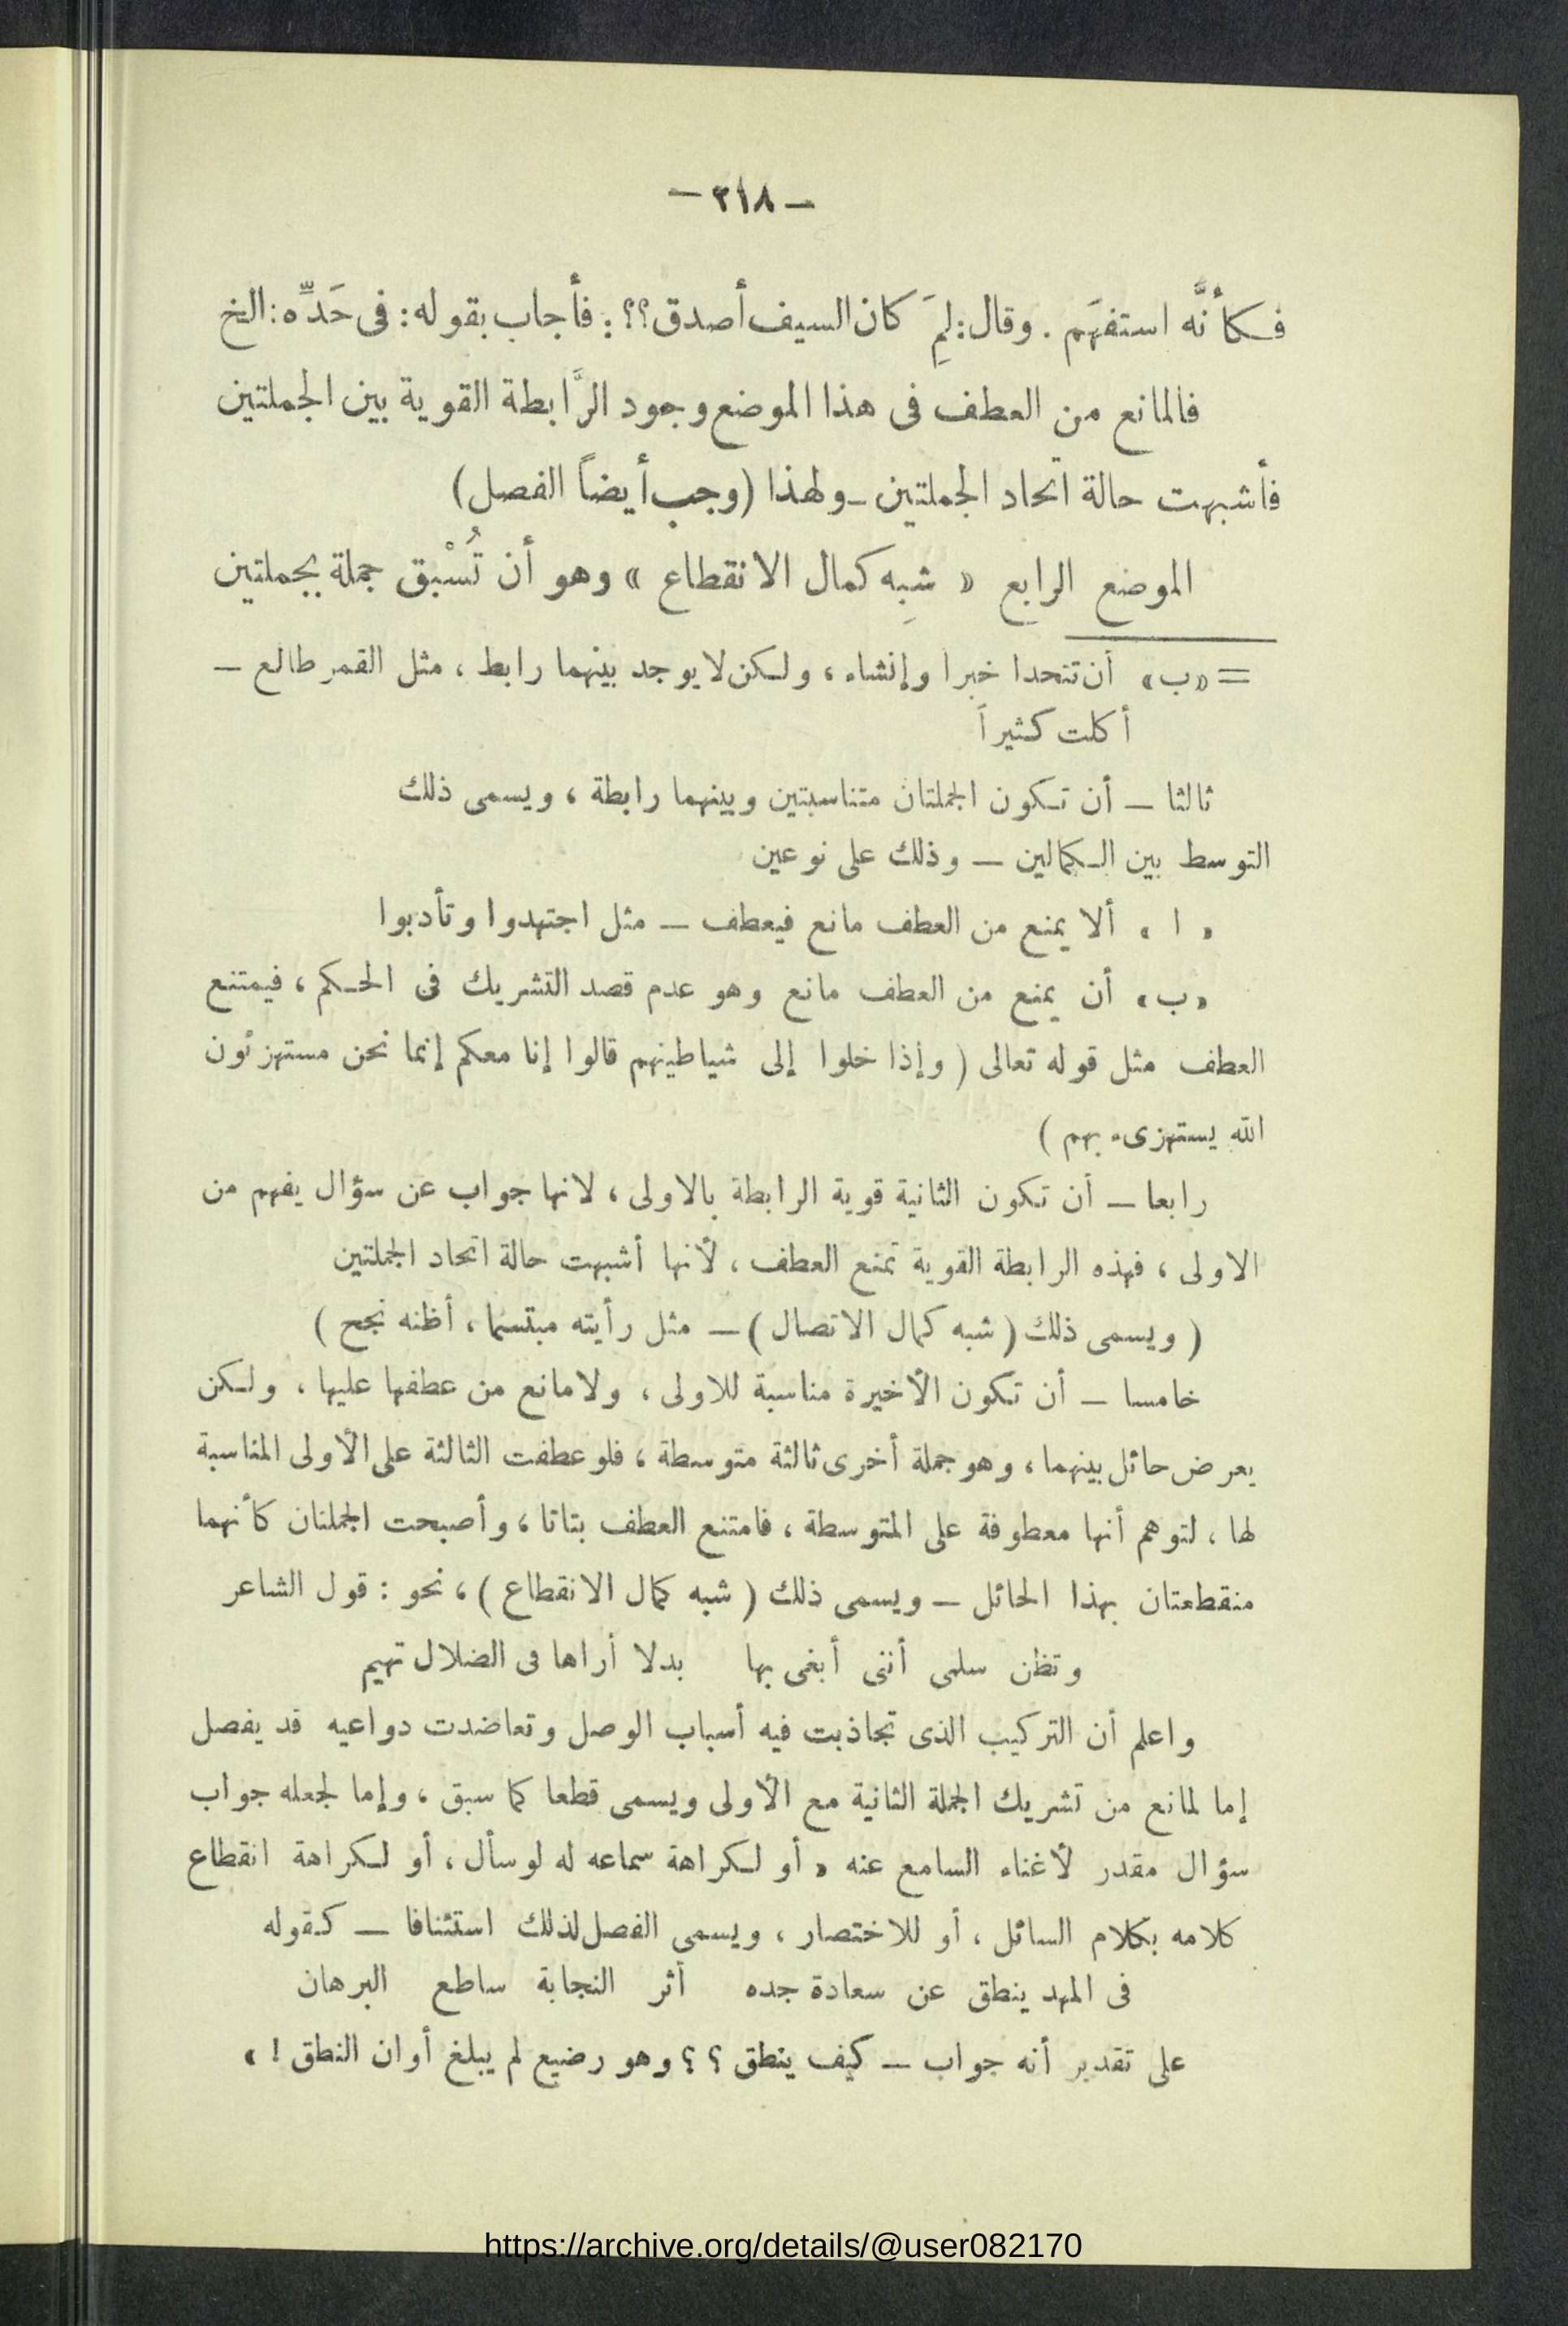 — ٢١٨ —
فكأنَّه استفهَم . وقال: لمِ َ كان السيف أصدق؟؟: فأجاب بقوله: فى حَدِّه: الخ
فالمانع من العطف فى هذا الموضع وجود الرَّابطة القوية بين الجملتين
فأشبهت حالة اتحاد الجملتين – ولهذا (وجب أيضاً الفصل)
الموضع الرابع « شبِه كمال الانقطاع » وهو أن تُسْبق جملة بجملتين
= «ب» أن تتحدا خبرا وإنشاء ، ولكن لا يوجد بينهما رابط ، مثل القمر طالع –
أكلت كثيراً
ثالثا – أن تكون الجملتان متناسبتين وبينهما رابطة ، ويسمى ذلك
التوسط بين الكمالين – وذلك على نوعين
« ا » ألا يمنع من العطف مانع فيعطف – مثل اجتهدوا وتأدبوا
«ب» أن يمنع من العطف مانع وهو عدم قصد التشريك فى الحكم ، فيمتنع
العطف مثل قوله تعالى ( وإذا خلوا إلى شياطينهم قالوا إنا معكم إنما نحن مستهزئون
الله يستهزىء بهم )
رابعا – أن تكون الثانية قوية الرابطة بالاولى ، لانها جواب عن سؤال يفهم من
الاولى ، فهذه الرابطة القوية تمنع العطف ، لأنها أشبهت حالة اتحاد الجملتين
( ويسمى ذلك ( شبه كمال الاتصال ) – مثل رأيته مبتسما ، أظنه نجح )
خامسا – أن تكون الأخيرة مناسبة للاولى ، ولا مانع من عطفها عليها ، ولكن
يعرض حائل بينهما ، وهو جملة أخرى ثالثة متوسطة ، فلو عطفت الثالثة على الأولى المناسبة
لها ، لتوهم أنها معطوفة على المتوسطة ، فامتنع العطف بتاتا ، وأصبحت الجملتان كأنهما
منقطعتان بهذا الحائل – ويسمى ذلك ( شبه كمال الانقطاع ) ، نحو : قول الشاعر
وتظن سلمى أننى أبغى بها بدلا أراها فى الضلال تهيم
واعلم أن التركيب الذى تجاذبت فيه أسباب الوصل وتعاضدت دواعيه قد يفصل
إما لمانع من تشريك الجملة الثانية مع الأولى ويسمى قطعا كما سبق ، وإما لجعله جواب
سؤال مقدر لأغناء السامع عنه « أو لكراهة سماعه له لو سأل ، أو لكراهة انقطاع
كلامه بكلام السائل ، أو للاختصار ، ويسمى الفصل لذلك استئنافا – كقوله
فى المهد ينطق عن سعادة جده أثر النجابة ساطع البرهان
على تقدير أنه جواب – كيف ينطق ؟ ؟ وهو رضيع لم يبلغ أوان النطق ! »
https://archive.org/details/@user082170